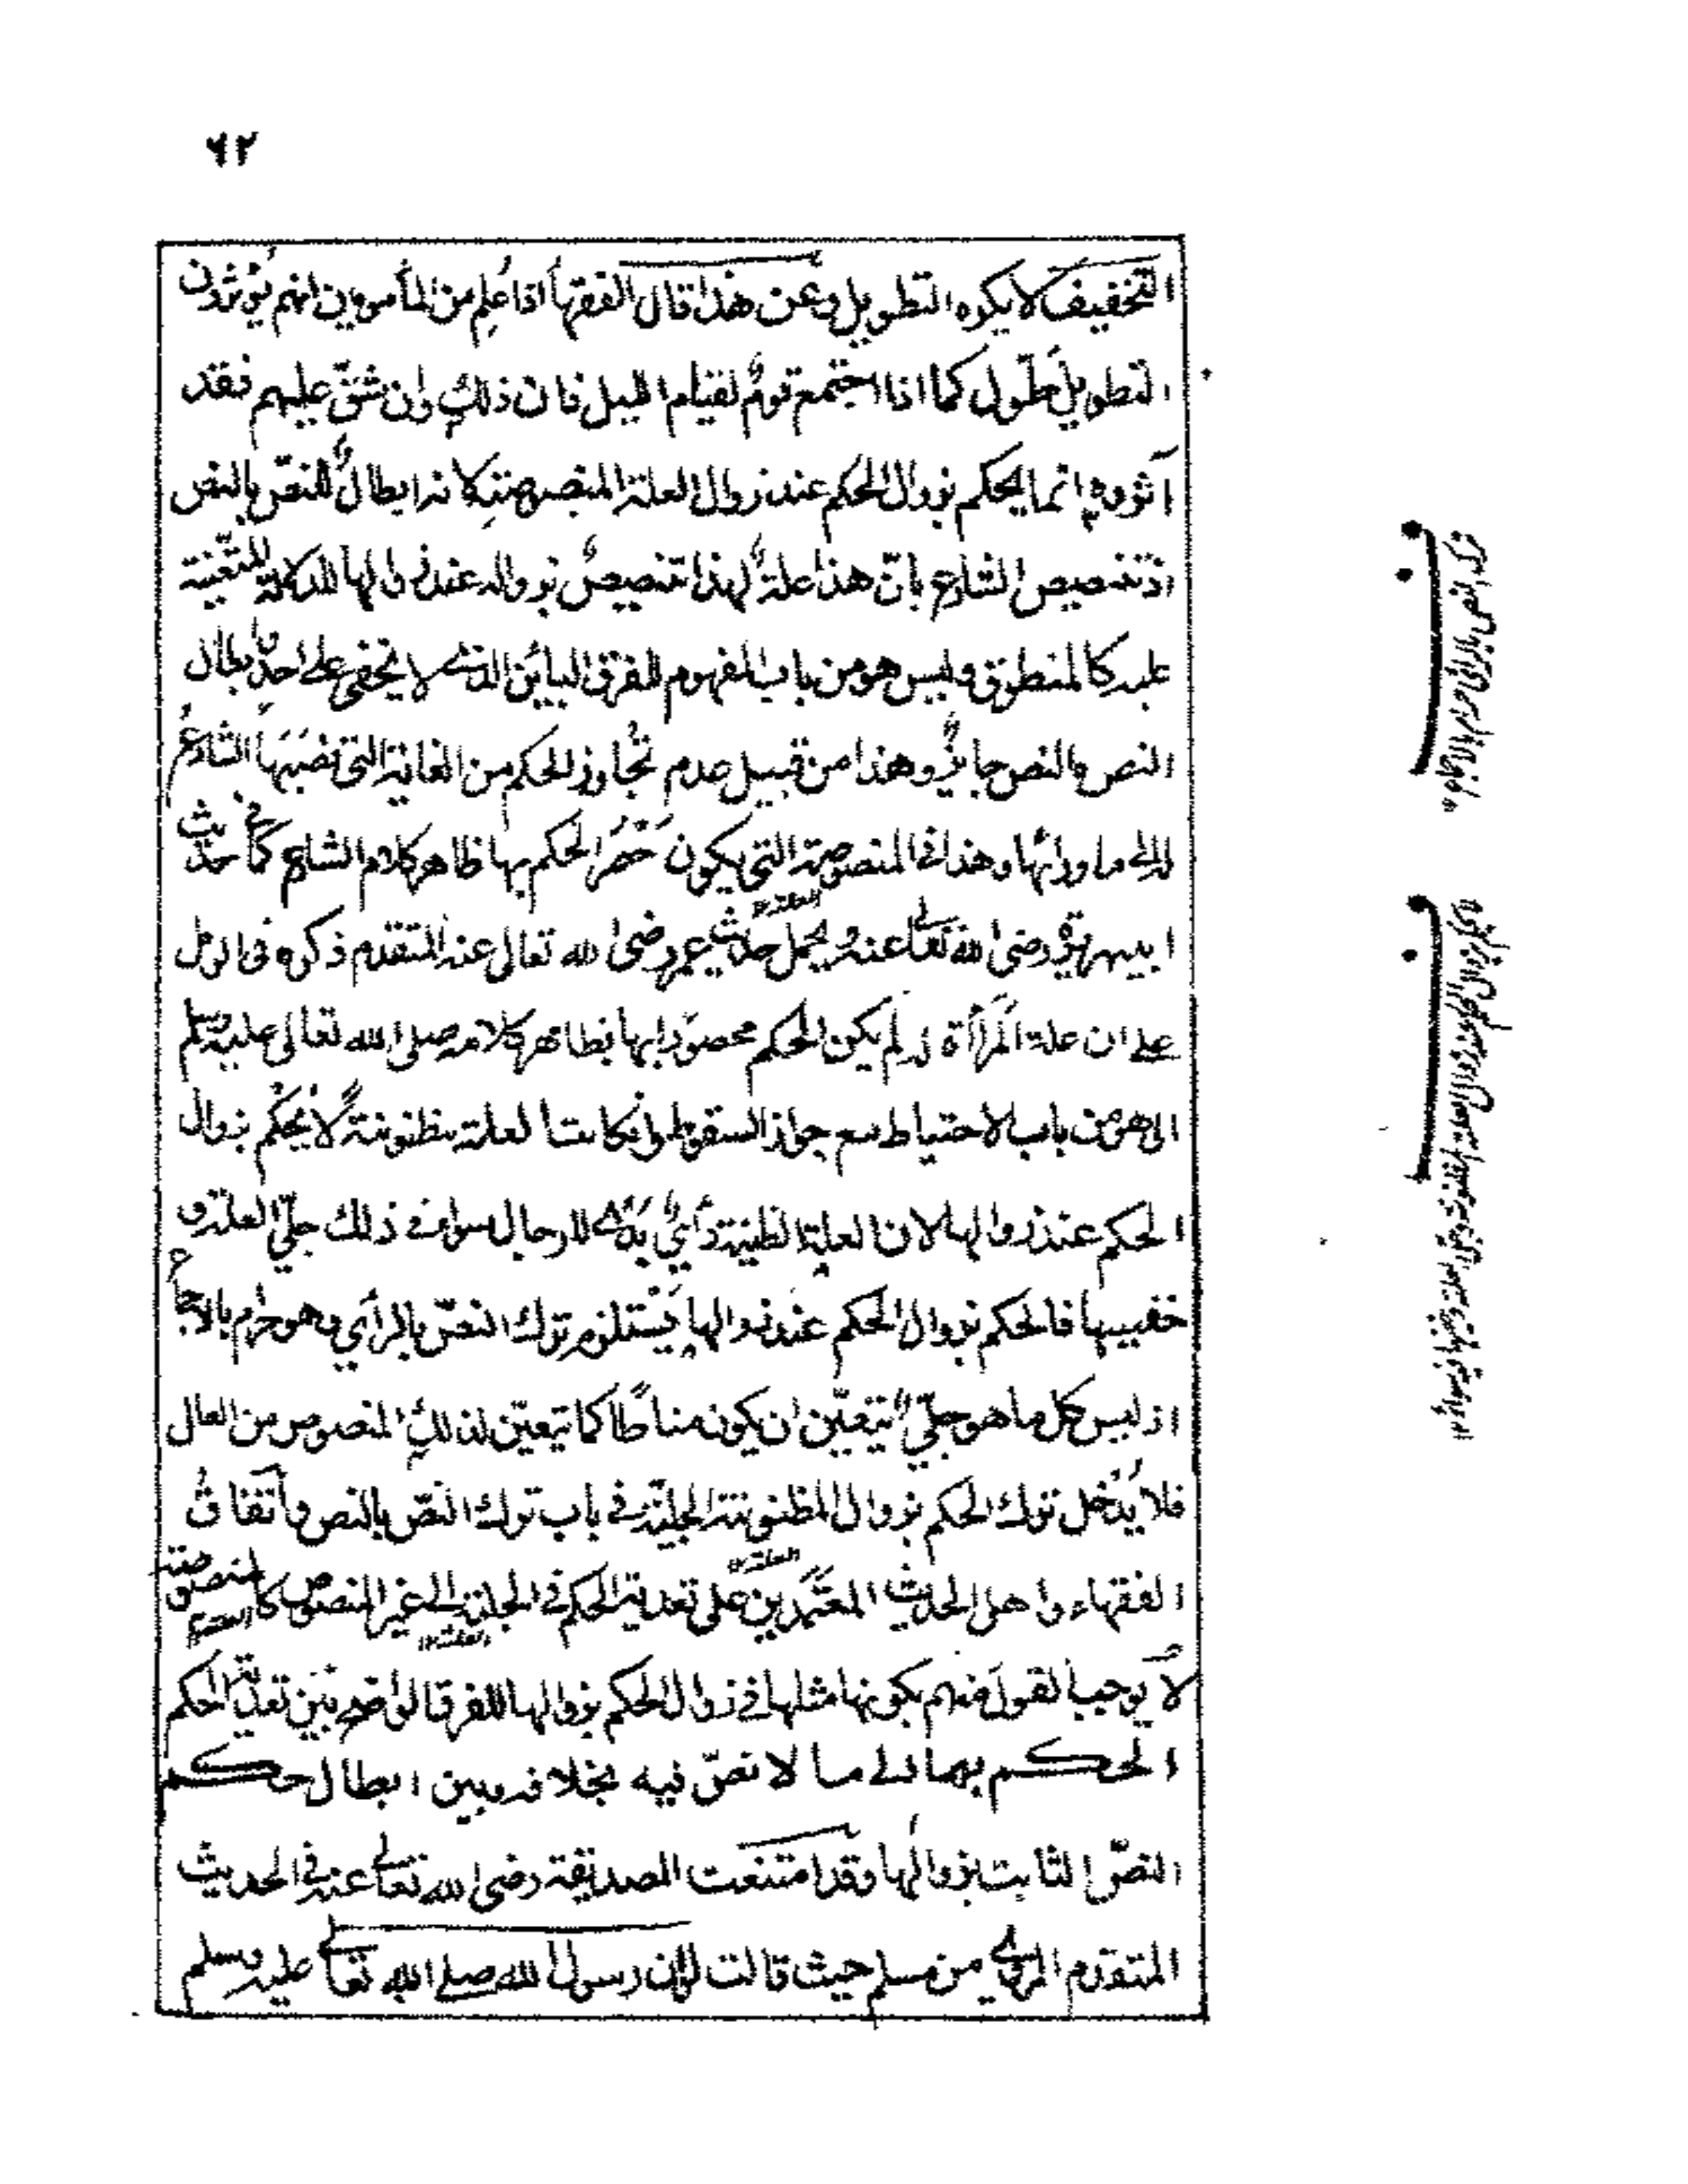 ٦٢
التخفيف لا يكره التطويل وعن هذا قال الفقهاء اذا علم من المأمومين انهم يؤثرون
التطويل طوّل كما اذا اجتمع قومٌ لقيام الليل فان ذلك وان شقّ عليهم فقد
آثروه انما يحكم بزوال الحكم عند زوال العلة المنصوصة لانه ابطالٌ للنصّ بالنص
اذ تنصيص الشارع بانّ هذا علةٌ لهذا تنصيصٌ بزواله عند زوالها للدلالة
عليه كالمنطوق وليس هو من باب المفهوم للفرق البائن الذي لا يخفى على احدٍ وابطال
النص بالنص جايزٌ وهذا من قبيل عدم تجاوز الحكم من الغاية التي نصبها الشارع
الى ما ورائها وهذا في المنصوصة التي يكون حصر الحكم بها ظاهر كلام الشارع كما في حديث
العلة
ابي هريرة رضى الله تعالى عنه ويحمل حديث عمر رضى الله تعالى عنه المتقدم ذكره في الرمل
على ان علة المرأاة لم يكن الحكم محصورا بها بظاهر كلامه صلى الله تعالى عليه وسلم
من باب الاحتياط مع جواز السقوط وان كانت العلة مظنونةً لا يحكم بزوال
الحكم عند زوالها لان العلة الظنية رأيٌ للرجال سواء في ذلك جليّ العلة و
خفيها فالحكم بزوال الحكم عند زوالها يستلزم ترك النصّ بالرأي وهو حرام بالاجماع
اذ ليس كل ما هو جليّ يتعيّن ان يكون مناطًا كما تيعيّن لذلك المنصوص من العلل
فلا يدخل ترك الحكم بزوال المظنونة الجلية في باب ترك النصّ بالنص واتفاق
العلة
الفقهاء واهل الحديث المعتمدين على تعدية الحكم في الجلية الى غير المنصوص كالمنصوصة
العلة
لا يوجب القول منهم بكونها مثلها في زوال الحكم بزوالها للفرق الواضح بين تعدية الحكم
الحكم بهما الى ما لا نصّ فيه بخلافه وبين ابطال حكم
النصّ الثابت بزوالها وقد امتنعت الصديقة رضى الله تعالى عنه في الحديث
المتقدم المروي من مسلم حيث قالت لو ان رسول الله صلى الله تعالى عليه وسلم
ترك النص بالرأي حرام بالاجماع
لا يحكم بزوال الحكم عند زوال العلة المظنونة وجلي العلة وخفيها فيه سواء ١٢